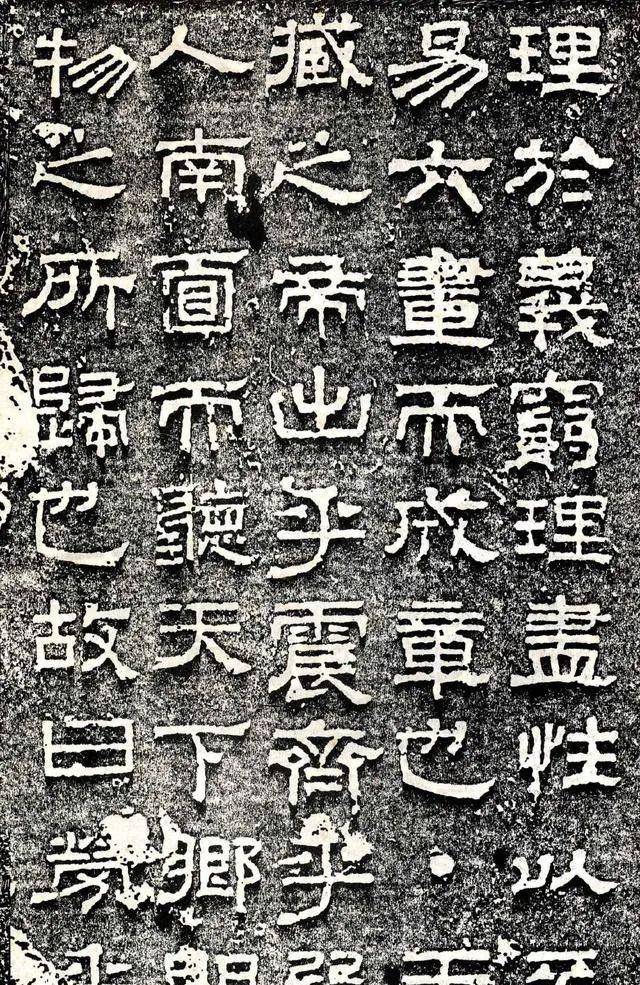 理於義窮理盡性以
易六畫而成章也・
藏之帝出乎震齊乎
人南面而聽天下鄉
物之所歸也故曰勞